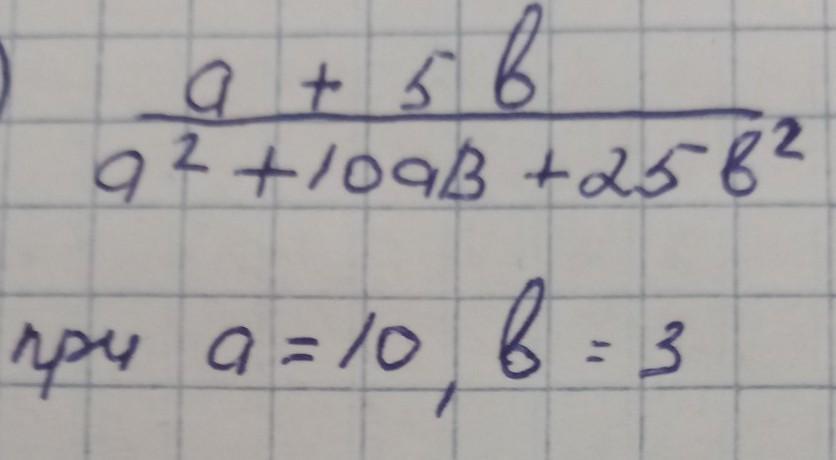 ) a + 5b
a² + 10ab + 25b²
при a = 10, b = 3